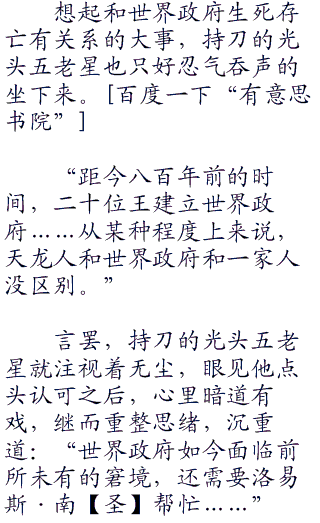 想起和世界政府生死存
亡有关系的大事，持刀的光
头五老星也只好忍气吞声的
坐下来。[百度一下“有意思
书院”]
“距今八百年前的时
间，二十位王建立世界政
府……从某种程度上来说，
天龙人和世界政府和一家人
没区别。”
言罢，持刀的光头五老
星就注视着无尘，眼见他点
头认可之后，心里暗道有
戏，继而重整思绪，沉重
道：“世界政府如今面临前
所未有的窘境，还需要洛易
斯·南【圣】帮忙……”